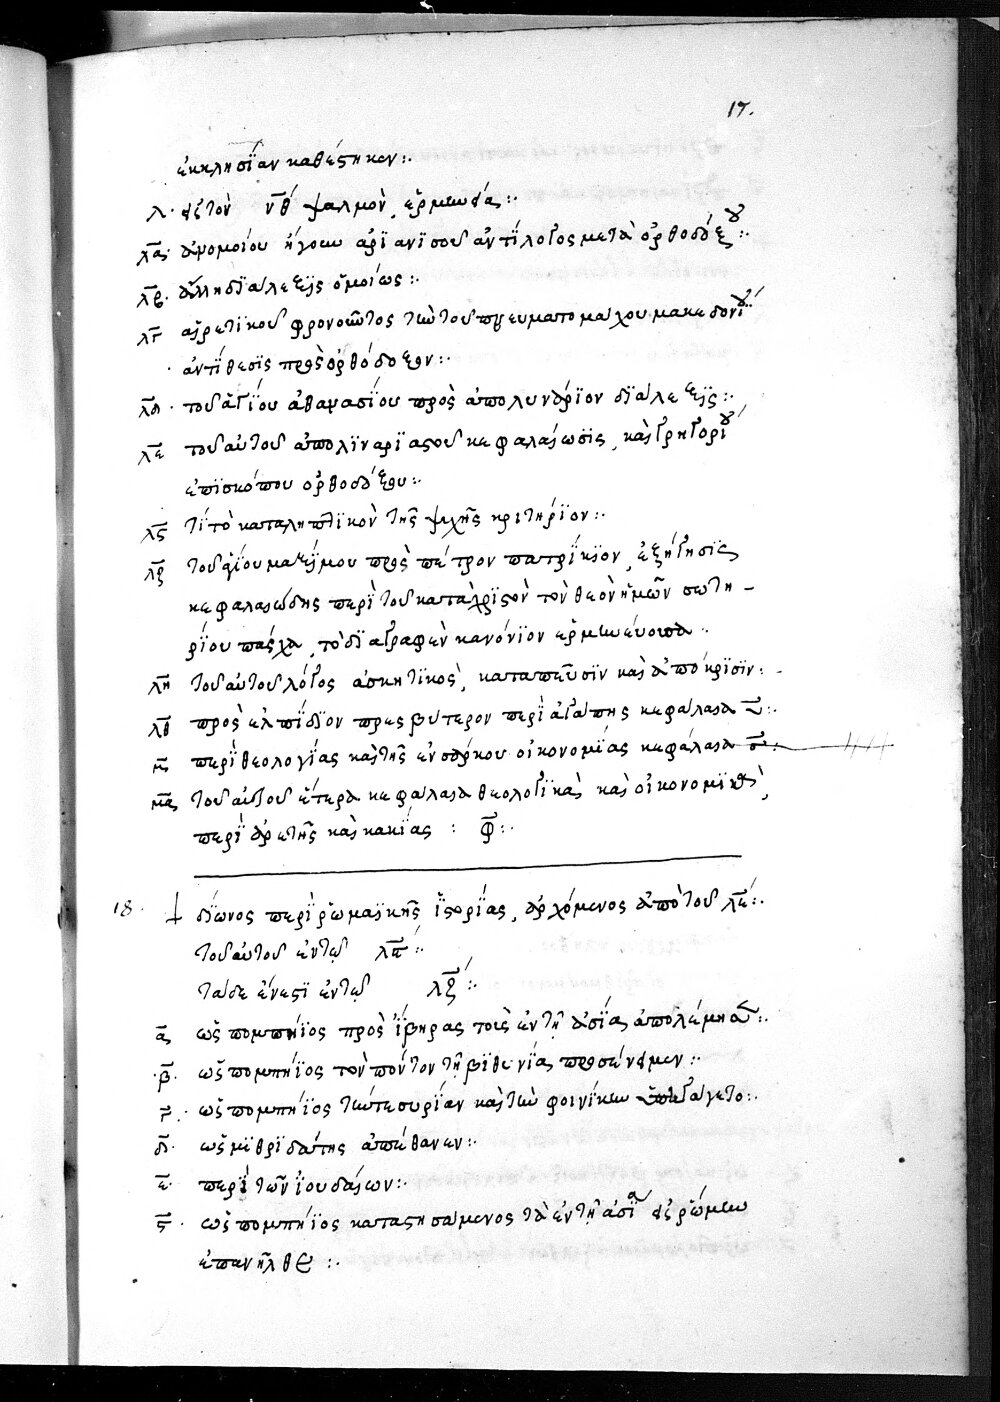 17.
ἐκκλησίαν καθέστηκεν:.
λ. εἰς τὸν νθ ψαλμὸν, ἑρμηνεία:.
λα. ἀνομοίου ἤγουν ἀρϊανϊστοῦ ἀντίλογος μετὰ ὀρθοδόξου:.
λβ. ἄλλη δϊάλεξϊς ὁμοίως:.
λγ αἱρετϊκοῦ φρονοῦντος τὰ τοῦ πνευματομάχου μακεδονΐου
ἀντίθεσϊς πρὸς ὀρθόδοξον:.
λδ. τοῦ ἁγίου ἀθανασΐου πρὸς ἀπολυνάριον δϊάλεξϊς:.
λε τοῦ αὐτοῦ ἀπολϊναρϊαστοῦ κεφαλαίωσϊς, καὶ γρηγορίου
ἐπϊσκόπου ὀρθοδόξου:.
λς τί τὸ καταληπτϊκὸν τῆς ψυχῆς κριτήριον:.
λζ τοῦ ἁγίου μαξίμου πρὸς πέτρον πατρίκϊον, ἐξήγησϊς
κεφαλαιώδης περὶ τοῦ κατὰ χριστὸν τὸν θεὸν ἡμῶν σωτη-
ρίου πάσχα, τὸ δϊαγραφὲν κανόνϊον ἑρμηνεύουσα.
λη τοῦ αὐτοῦ λόγος ἀσκητϊκὸς, κατὰ πεῦσϊν καὶ ἀπόκρϊσϊν:.
λθ πρὸς ἐλπίδϊον πρεσβύτερον περὶ ἀγάπης κεφάλαια υ:.
μ περὶ θεολογίας καὶ τῆς ἐνσάρκου οἰκονομίας κεφάλαια σ:.
μα τοῦ αὐτοῦ ἕτερα κεφάλαια θεολογϊκὰ καὶ οἰκονομϊκὰ,
περὶ ἀρετῆς καὶ κακίας : φ:.
18. δΐωνος περὶ ῥωμαϊκῆς ἱστορίας, ἀρχόμενος ἀπὸ τοῦ λε:.
τοῦ αὐτοῦ ἐν τῷ λε:.
τάδε ἔνεστϊ ἐν τῷ λζ:.
α ὡς πομπήϊος πρὸς ἴβηρας τοὺς ἐν τῇ ἀσίᾳ ἐπολέμησεν:.
β. ὡς πομπήϊος τὸν πόντον τῇ βϊθυνίᾳ προσένειμεν:.
γ. ὡς πομπήϊος τήν τε συρίαν καὶ τὴν φοινίκην ὑπηγάγετο:.
δ. ὡς μϊθρϊδάτης ἀπέθανεν:.
ε. περὶ τῶν ἰουδαίων:.
ς. ὡς πομπήϊος καταστησάμενος τὰ ἐν τῇ ἀσίᾳ εἰς ῥώμην
ἐπανῆλθε:.